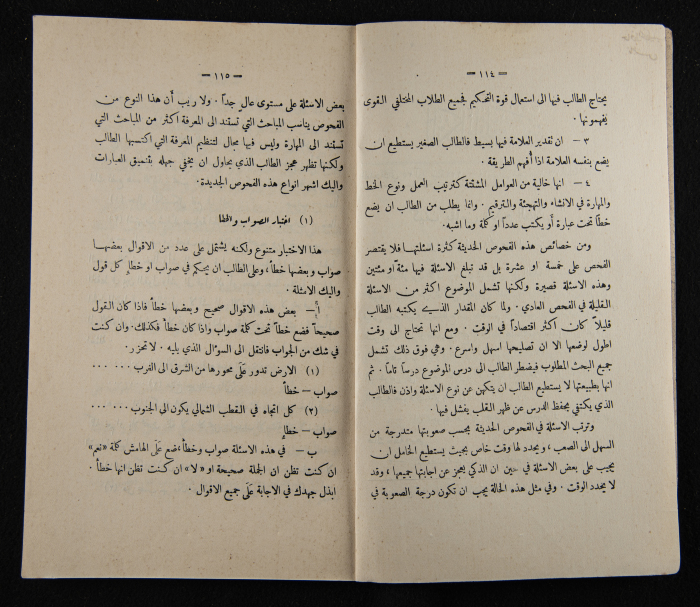 — ١١٤ —
يحتاج الطالب فيها الى استعمال قوة التحكيم فجميع الطلاب المختلفي القوى
يفهمونها .
٣ — ان تقدير العلامة فيها بسيط فالطالب الصغير يستطيع ان
يضع بنفسه العلامة اذا أفهم الطريقة .
٤ — انها خالية من العوامل المشتتة كترتيب العمل ونوع الخط
والمهارة في الانشاء والتهجئة والترقيم . وانما يطلب من الطالب ان يضع
خطاً تحت عبارة أو يكتب عدداً او كلمة وما اشبه .
ومن خصائص هذه الفحوص الحديثة كثرة اسئلتها فلا يقتصر
الفحص على خمسة او عشرة بل قد تبلغ الاسئلة فيها مئة او مئتين
وهذه الاسئلة قصيرة ولكنها تشمل الموضوع اكثر من الاسئلة
القليلة في الفحص العادي . ولما كان المقدار الذي يكتبه الطالب
قليلاً كان أكثر اقتصاداً في الوقت . ومع انها تحتاج الى وقت
اطول لوضعها الا ان تصليحها اسهل واسرع . وهي فوق ذلك تشمل
جميع البحث المطلوب فيضطر الطالب الى درس الموضوع درساً تاماً . ثم
انها بطبيعتها لا يستطيع الطالب ان يتكهن عن نوع الاسئلة واذن فالطالب
الذي يكتفي بحفظ الدرس عن ظهر القلب يفشل فيها .
وترتب الاسئلة في الفحوص الحديثة بحسب صعوبتها متدرجة من
السهل الى الصعب ، ويحدد لها وقت خاص بحيث يستطيع الخامل ان
يجيب على بعض الاسئلة في حين ان الذكي يعجز عن اجابتها جميعها ، وقد
لا يحدد الوقت . وفي مثل هذه الحالة يجب ان تكون درجة الصعوبة في
— ١١٥ —
بعض الاسئلة على مستوى عالٍ جداً . ولا ريب أن هذا النوع من
الفحوص يناسب المباحث التي تستند الى المعرفة اكثر من المباحث التي
تستند الى المهارة وليس فيها مجال لتنظيم المعرفة التي اكتسبها الطالب
ولكنها تظهر عجز الطالب الذي يحاول ان يخفي جهله بتنميق العبارات
واليك اشهر انواع هذه الفحوص الجديدة .
(١) اختبار الصواب والخطا
هذا الاختبار متنوع ولكنه يشتمل على عدد من الاقوال بعضها
صواب وبعضها خطأ ، وعلى الطالب ان يحكم في صواب او خطإ كل قول
واليك الامثلة .
أ — بعض هذه الاقوال صحيح وبعضها خطأ فاذا كان القول
صحيحاً فضع خطاً تحت كلمة صواب واذا كان خطأ فكذلك - وان كنت
في شك من الجواب فانتقل الى السؤال الذي يليه . لا تحزر .
(١) الارض تدور على محورها من الشرق الى الغرب ... ...
صواب — خطأ
(٢) كل اتجاه في القطب الشمالي يكون الى الجنوب ... ...
صواب — خطإ
ب — في هذه الاسئلة صواب وخطأ ، ضع على الهامش كلمة «نعم»
ان كنت تظن ان الجملة صحيحة او « لا » ان كنت تظن انها خطأ .
ابذل جهدك في الاجابة على جميع الاقوال .